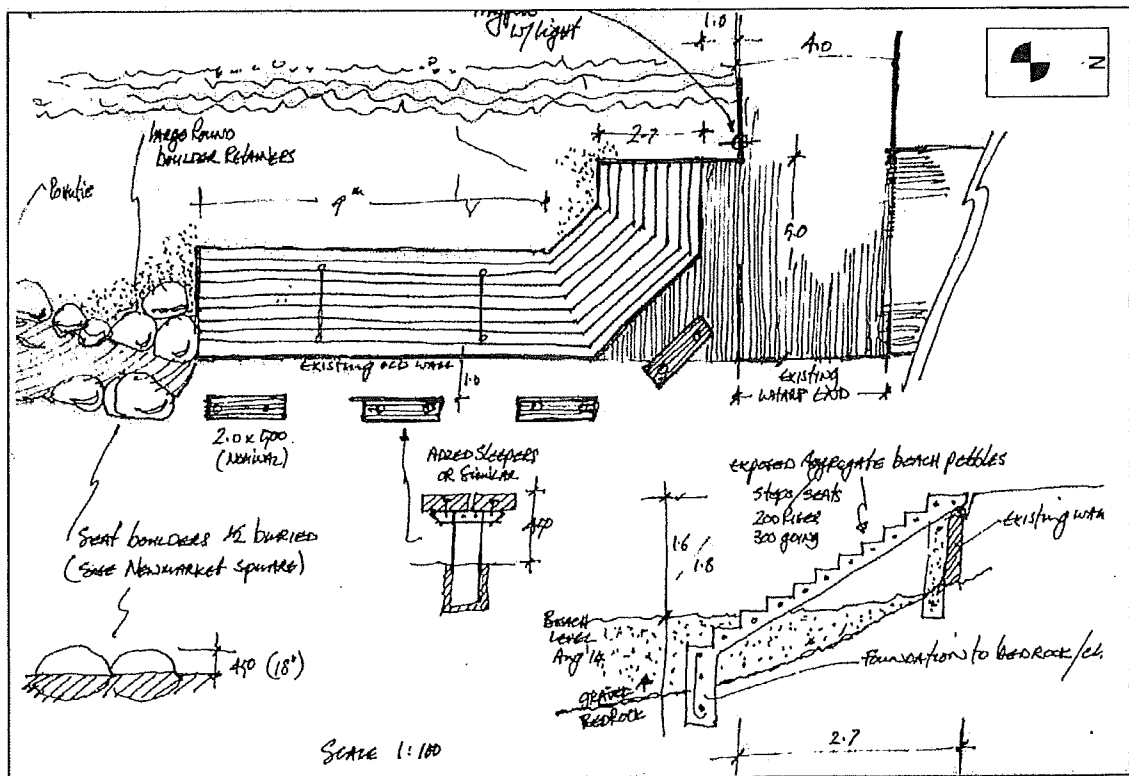 W/Light
1.0
4.0
N
LARGE ROUND
BOULDER RETAINERS
2.7
9m
5.0
EXISTING OLD WALL
1.0
EXISTING
WHARF END
2.0 x
(NOMINAL)
ADZED SLEEPERS
OR SIMILAR
450
EXPOSED AGGREGATE BEACH PEBBLES
STEPS/SEATS
200 RISER
300 GOING
EXISTING WALL
1.6/
1.8
SEAT BOULDERS 1/2 BURIED
(SEE NEWMARKET SQUARE)
BEACH
LEVEL
Aug 14.
FOUNDATION TO BEDROCK/
450 (18")
GRAVEL
BEDROCK
SCALE 1:100
2.7